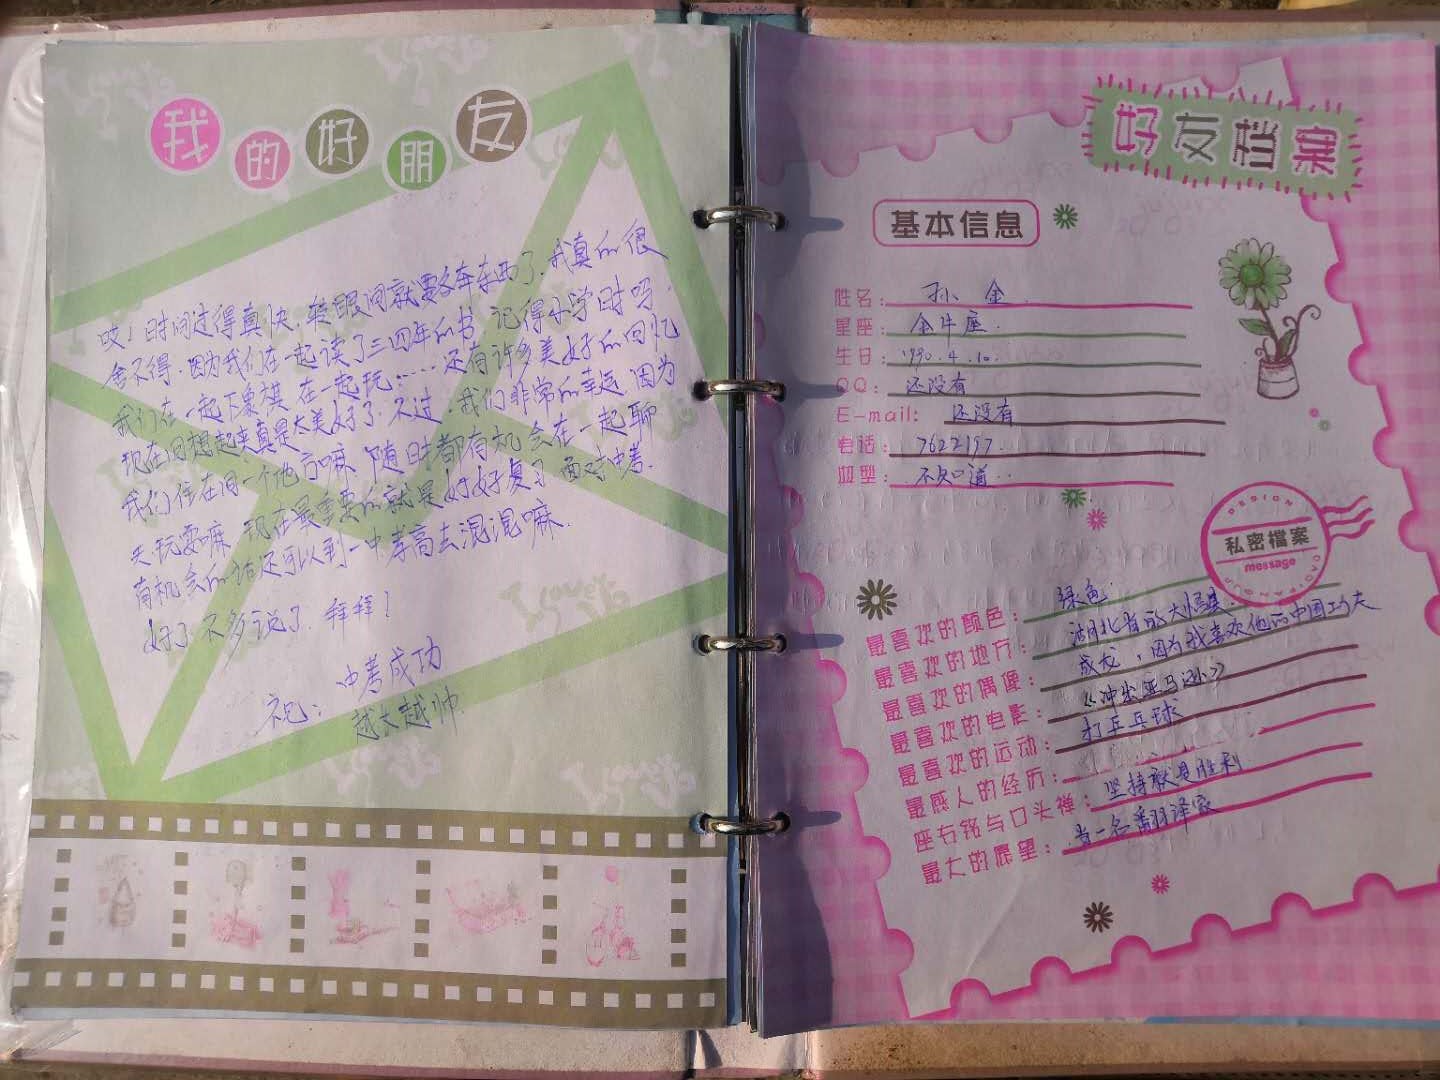 我的好朋友
哎！时间过得真快，转眼间就要各奔东西了，我真的很
舍不得，因为我们在一起读了三四年的书，记得小学时吗，
我们在一起下象棋 在一起玩……还有许多美好的回忆
现在回想起来真是太美好了，不过，我们非常的幸运 因为
我们住在同一个地方嘛 随时都有机会在一起聊
天，玩耍嘛 现在最重要的就是好好复习 面对中考.
有机会的话还可以到一中 高去混混嘛.
好了 不多说了. 拜拜！
祝： 中考成功
越大越帅
好友档案
基本信息
姓名: 孙金
星座: 金牛座.
生日: 1990.4.10.
QQ: 还没有
E-mail: 还没有
电话: 7622197.
血型: 不知道
DESIGN
私密檔案
message
最喜欢的颜色: 绿色.
最喜欢的地方: 湖北省的大
最喜欢的偶像: 成龙，因为我喜欢他的中国功夫
最喜欢的电影: 《冲出亚马逊》
最喜欢的运动: 打乒乓球
最感人的经历:
座右铭与口头禅: 坚持就是胜利
最大的愿望: 当一名翻译家